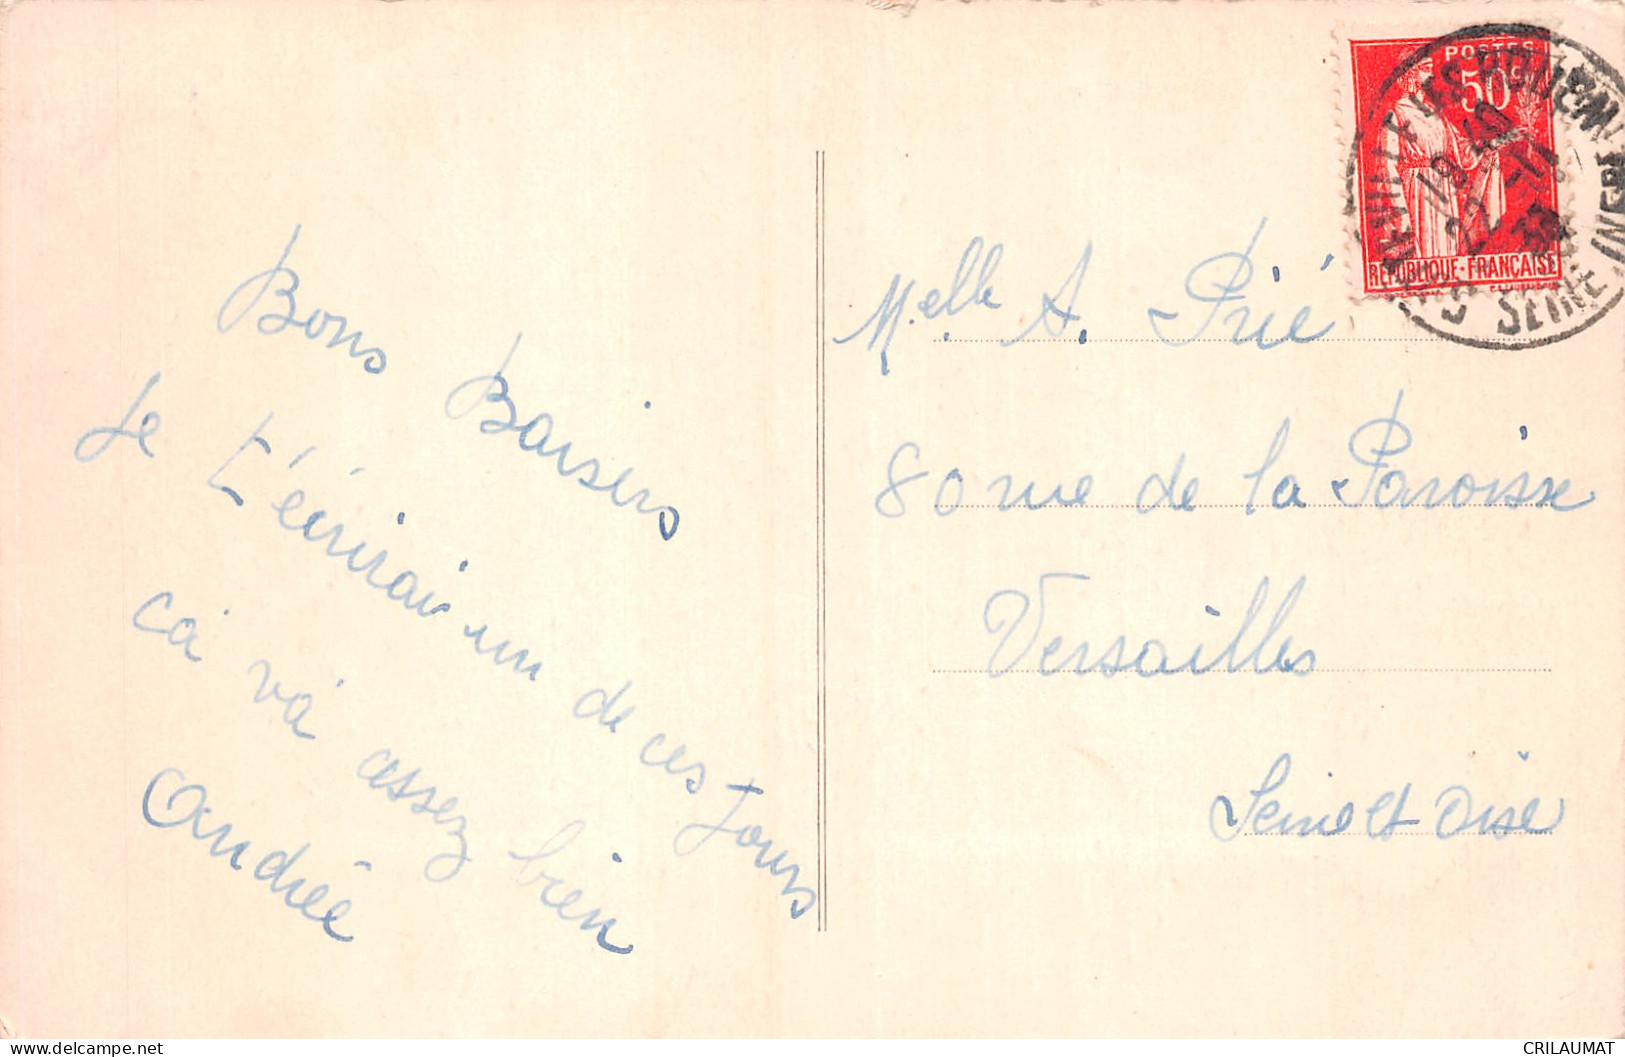 Bons Baisers
Je t'écrirai un de ces Jours
ça va assez bien
Andrée
Melle A. Prié
80 rue de la Paroisse
Versailles
Seine et Oise
POSTES
50c
REPUBLIQUE-FRANÇAISE
18 40
22-11
SEINE INFRE
Delcampe.net
CRILAUMAT